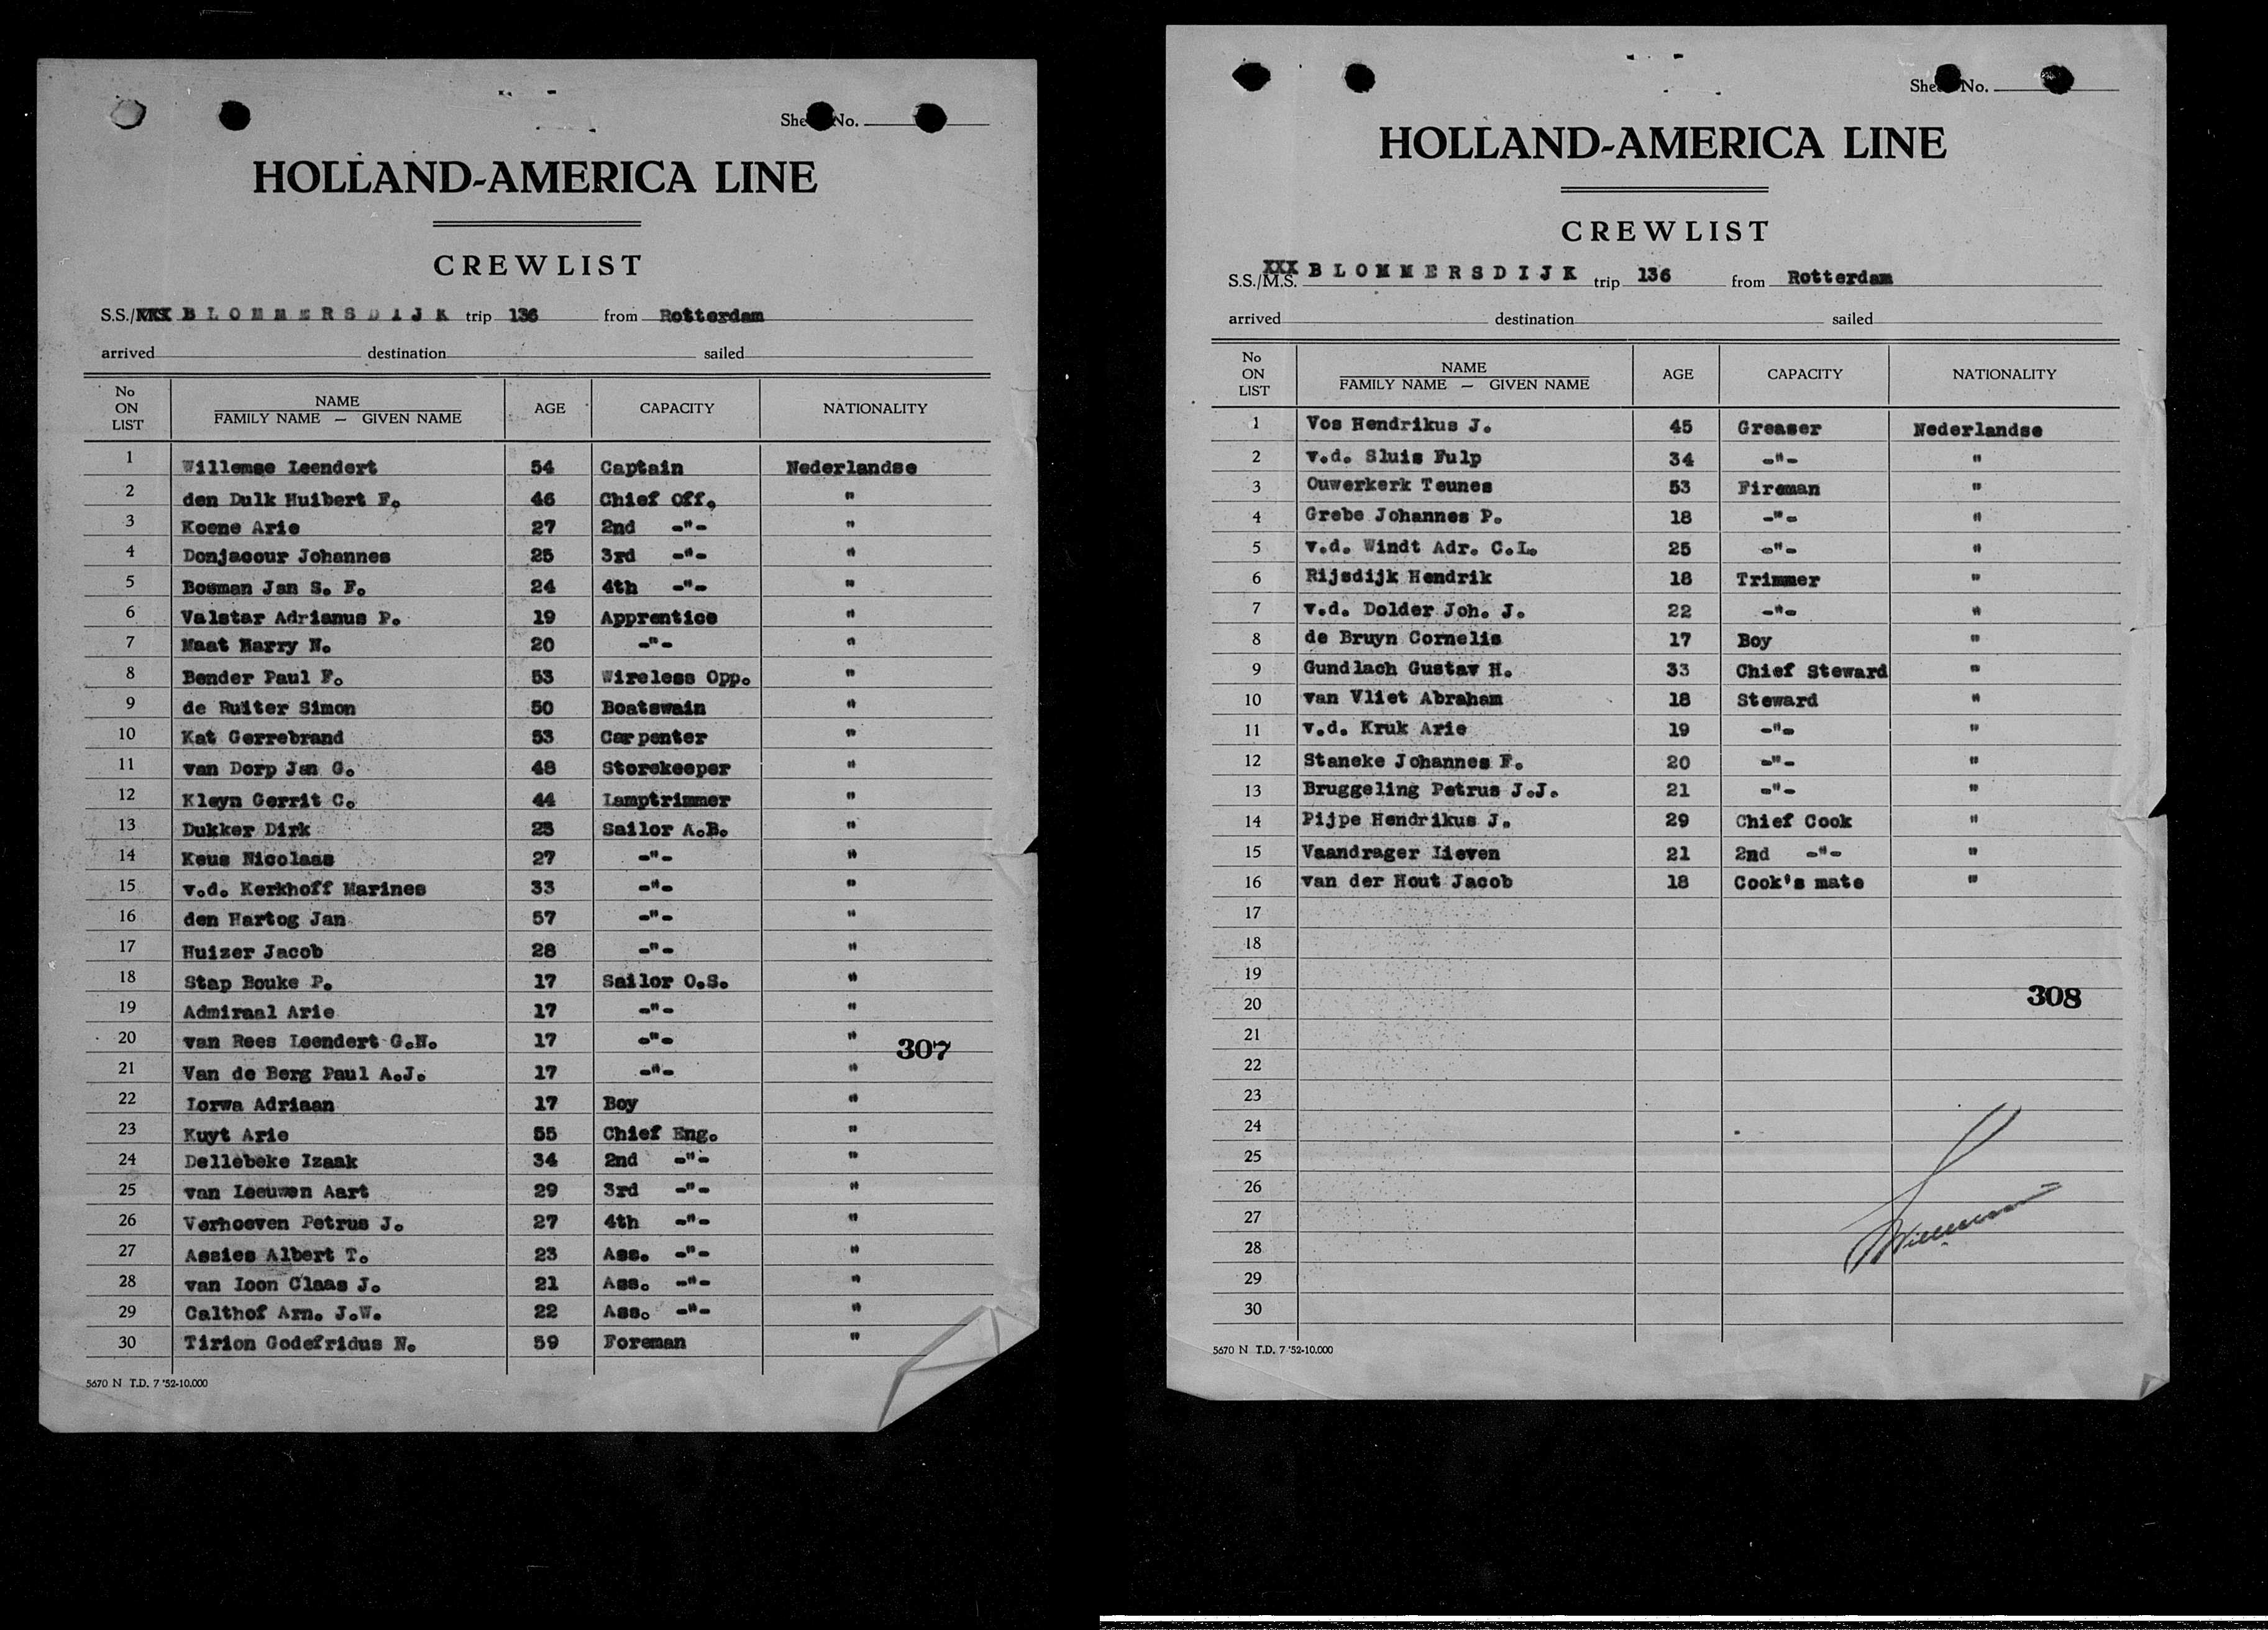 Sheet No.
HOLLAND-AMERICA LINE
CREWLIST
S.S./XXX BLOMMERSDIJK trip 136 from Rotterdam
arrived destination sailed
No ON LIST NAME FAMILY NAME — GIVEN NAME AGE CAPACITY NATIONALITY
1 Willemse Leendert 54 Captain Nederlandse
2 den Dulk Huibert F. 46 Chief Off. "
3 Koene Arie 27 2nd -"- "
4 Donjacour Johannes 25 3rd -"- "
5 Bosman Jan S. F. 24 4th -"- "
6 Valstar Adrianus P. 19 Apprentice "
7 Maat Harry N. 20 -"- "
8 Bender Paul F. 53 Wireless Opp. "
9 de Ruiter Simon 50 Boatswain "
10 Kat Gerrebrand 53 Carpenter "
11 van Dorp Jan G. 48 Storekeeper "
12 Kleyn Gerrit C. 44 Lamptrimmer "
13 Dukker Dirk Sailor A.B. "
14 Keus Nicolaas 27 -"- "
15 v.d. Kerkhoff Marines 33 -"- "
16 den Hartog Jan 57 -"- "
17 Huizer Jacob 28 -"- "
18 Stap Bouke P. 17 Sailor O.S. "
19 Admiraal Arie 17 -"- "
20 van Rees Leendert G.N. 17 -"- "
307
21 Van de Berg Paul A.J. 17 -"- "
22 Lorwa Adriaan 17 Boy "
23 Kuyt Arie 55 Chief Eng. "
24 Dellebeke Izaak 34 2nd -"- "
25 van Leeuwen Aart 29 3rd -"- "
26 Verhoeven Petrus J. 27 4th -"- "
27 Assies Albert T. 23 Ass. -"- "
28 van Loon Claas J. 21 Ass. -"- "
29 Calthof Arn. J.W. 22 Ass. -"- "
30 Tirion Godefridus N. 59 Foreman "
5670 N T.D. 7 '52-10.000
Sheet No.
HOLLAND-AMERICA LINE
CREWLIST
XXX
S.S./M.S. BLOMMERSDIJK trip 136 from Rotterdam
arrived destination sailed
No ON LIST NAME FAMILY NAME — GIVEN NAME AGE CAPACITY NATIONALITY
1 Vos Hendrikus J. 45 Greaser Nederlandse
2 v.d. Sluis Fulp 34 -"- "
3 Ouwerkerk Teunes 53 Fireman "
4 Grebe Johannes P. 18 -"- "
5 v.d. Windt Adr. C.L. 25 -"- "
6 Rijsdijk Hendrik 18 Trimmer "
7 v.d. Dolder Joh. J. 22 -"- "
8 de Bruyn Cornelis 17 Boy "
9 Gundlach Gustav H. 33 Chief Steward "
10 van Vliet Abraham 18 Steward "
11 v.d. Kruk Arie 19 -"- "
12 Staneke Johannes F. 20 -"- "
13 Bruggeling Petrus J.J. 21 -"- "
14 Pijpe Hendrikus J. 29 Chief Cook "
15 Vaandrager Lieven 21 2nd -"- "
16 van der Hout Jacob 18 Cook's mate "
17
18
19
20
308
21
22
23
24
25
26
27
28
29
30
5670 N T.D. 7 '52-10.000